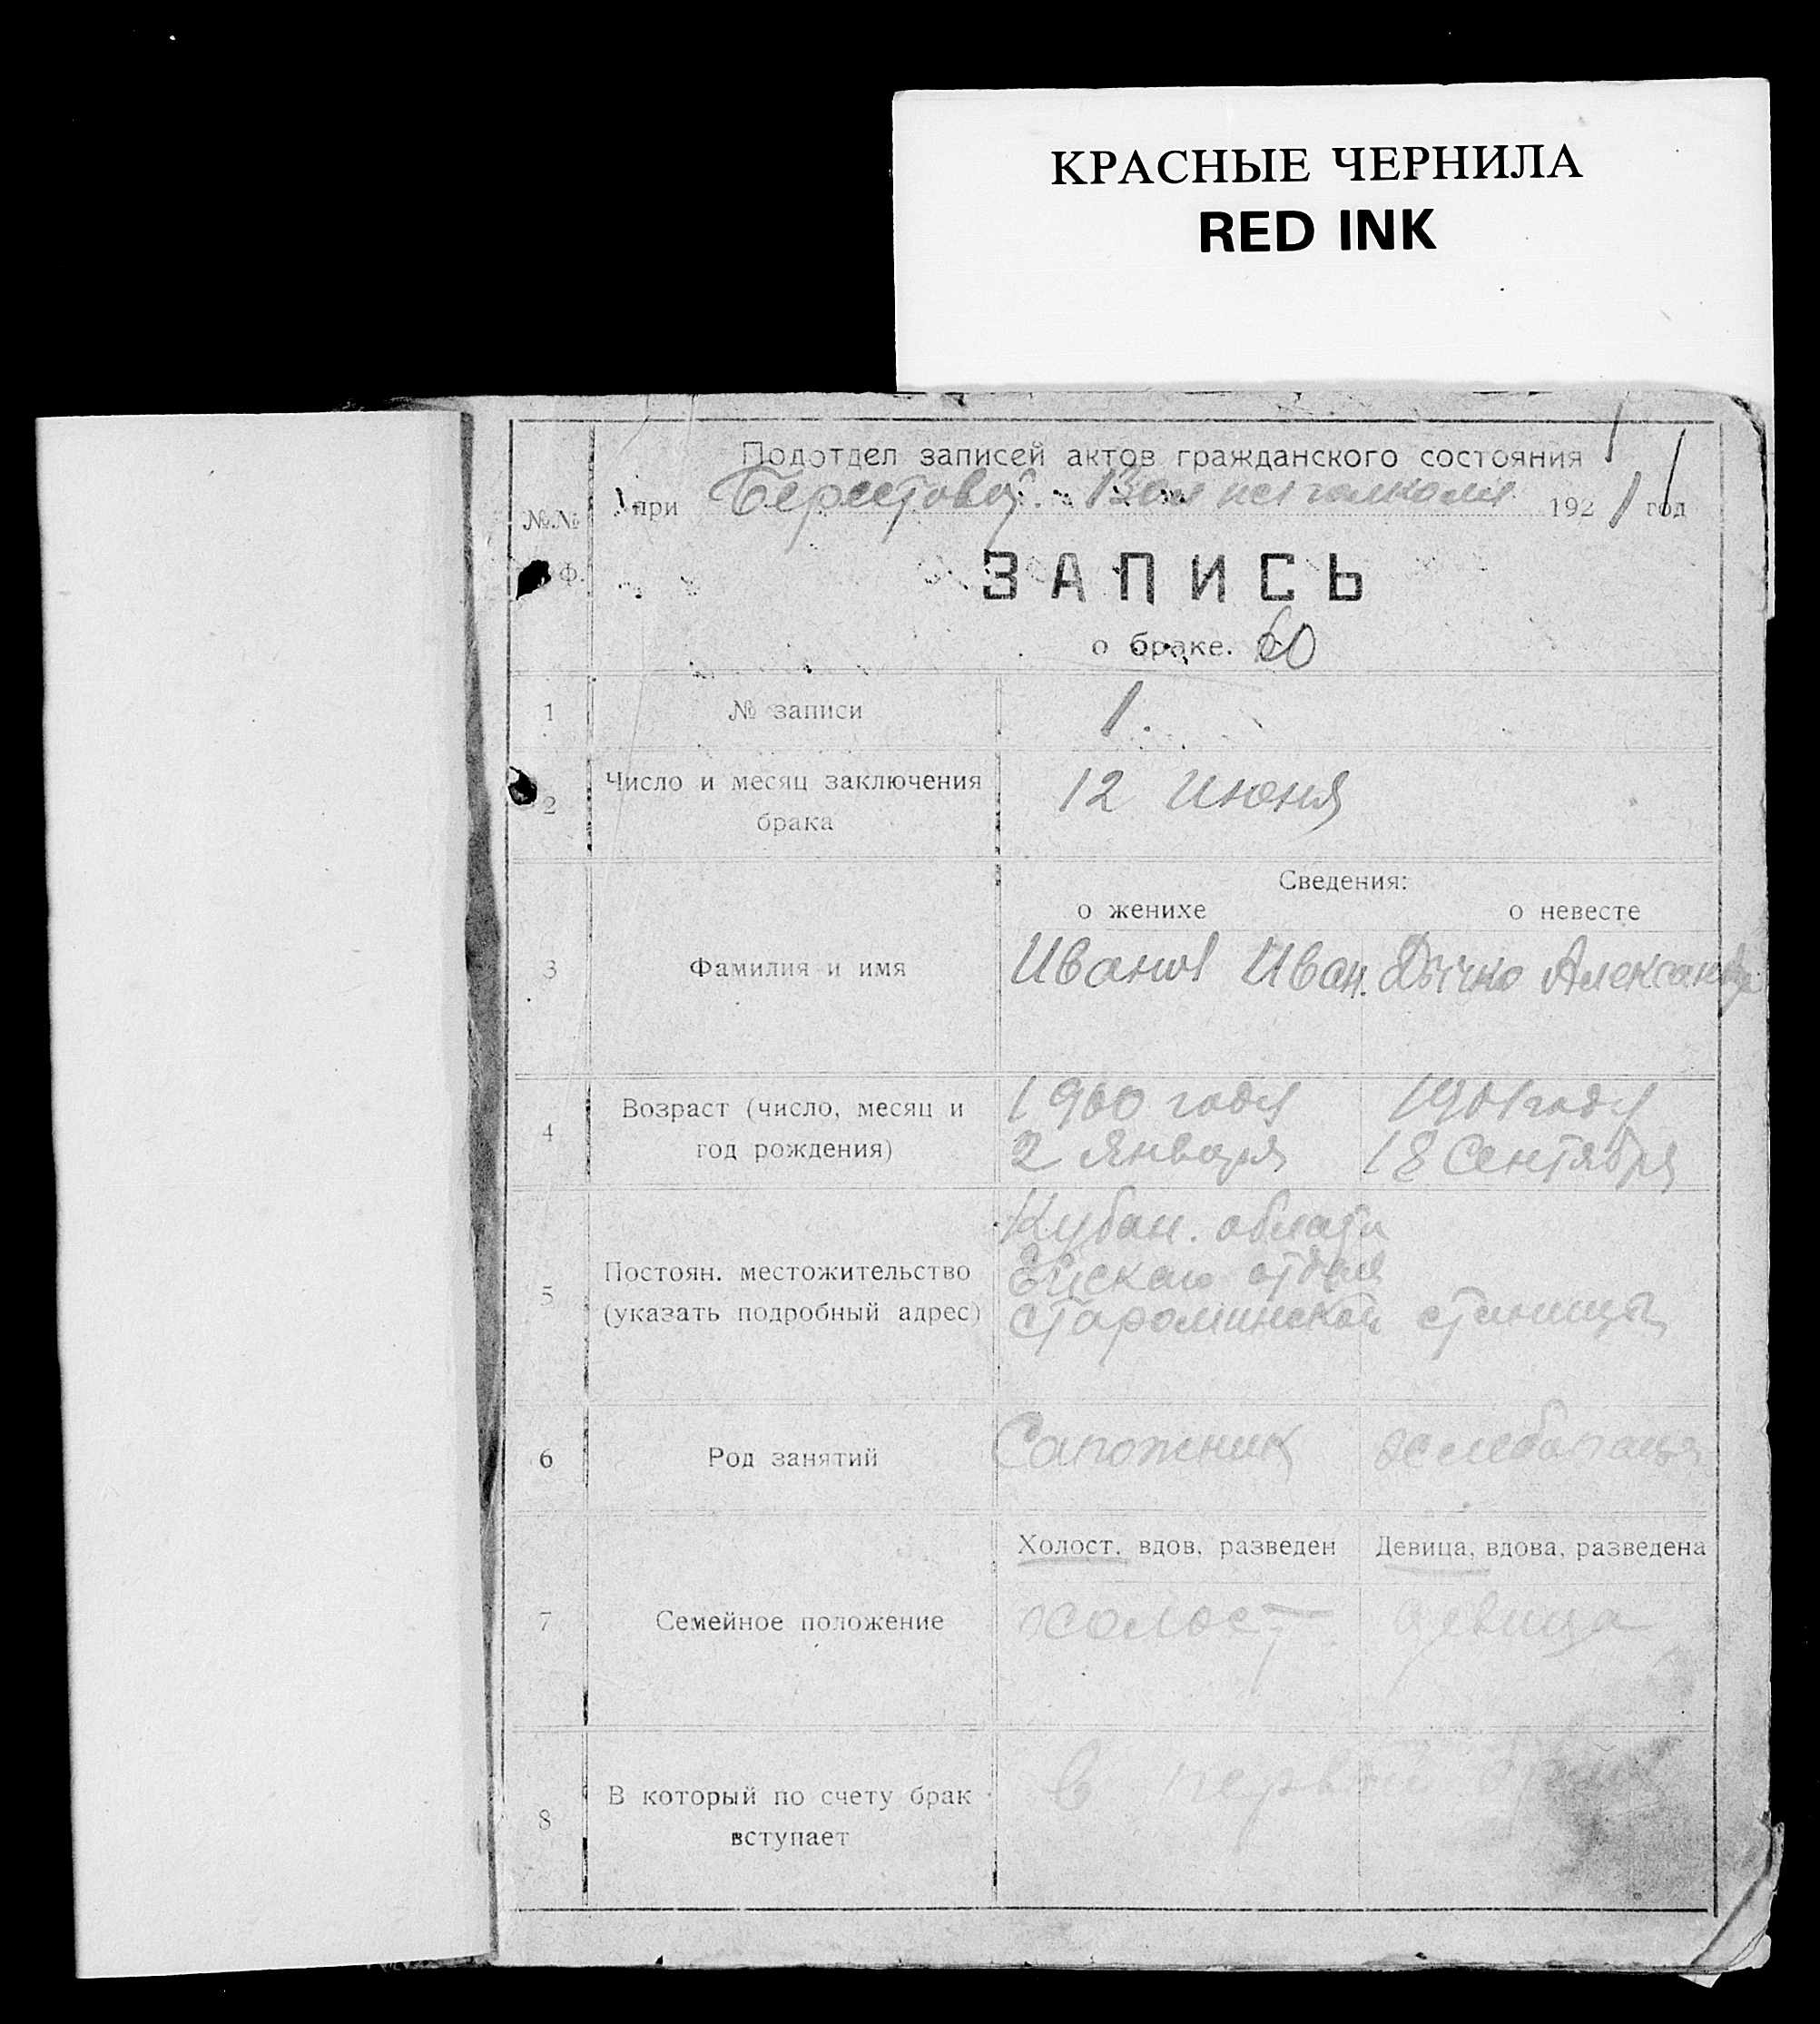 КРАСНЫЕ ЧЕРНИЛА
RED INK
Подотдел записей актов гражданского состояния
№№
при Берестовой Вол исполкоме 1921 год
ф.
ЗАПИСЬ
о браке. 60
1 № записи 1.
2 Число и месяц заключения брака 12 Июня
Сведения:
о женихе о невесте
3 Фамилия и имя Иванов Иван. Дычко Александра
4 Возраст (число, месяц и год рождения)
1900 года 1901 года
2 Января 18 Сентября
5 Постоян. местожительство (указать подробный адрес)
Кубан. области
Ейскаго отдела
староминской станицы
6 Род занятий Сапожник
Холост, вдов, разведен Девица, вдова, разведена
7 Семейное положение холост девица
8 В который по счету брак вступает в первый брак